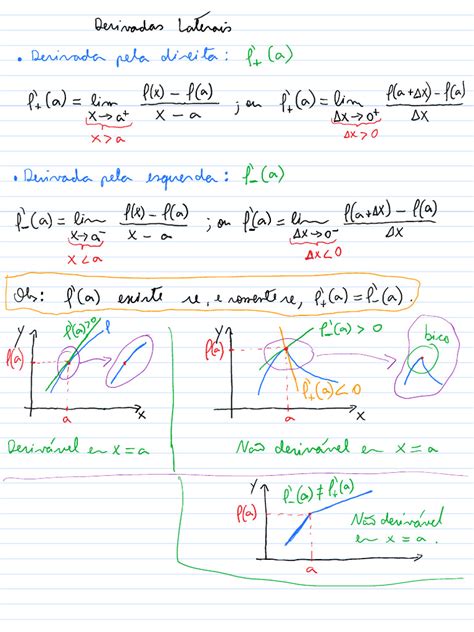 Derivadas Laterais
• Derivada pela direita: f'₊(a)
f'₊(a) = lim f(x) - f(a) / x - a ; ou f'₊(a) = lim f(a+Δx) - f(a) / Δx
x→a⁺ Δx→0⁺
x > a Δx > 0
• Derivada pela esquerda: f'₋(a)
f'₋(a) = lim f(x) - f(a) / x - a ; ou f'₋(a) = lim f(a+Δx) - f(a) / Δx
x→a⁻ Δx→0⁻
x < a Δx < 0
Obs: f'(a) existe se, e somente se, f'₊(a) = f'₋(a).
y f'(a)>0 f
f(a)
a x
Derivável em x = a
y f'₋(a) > 0
f(a)
f'₊(a) < 0
a x
bico
Não derivável em x = a
y f'₋(a) ≠ f'₊(a)
f(a)
a x
Não derivável
em x = a.